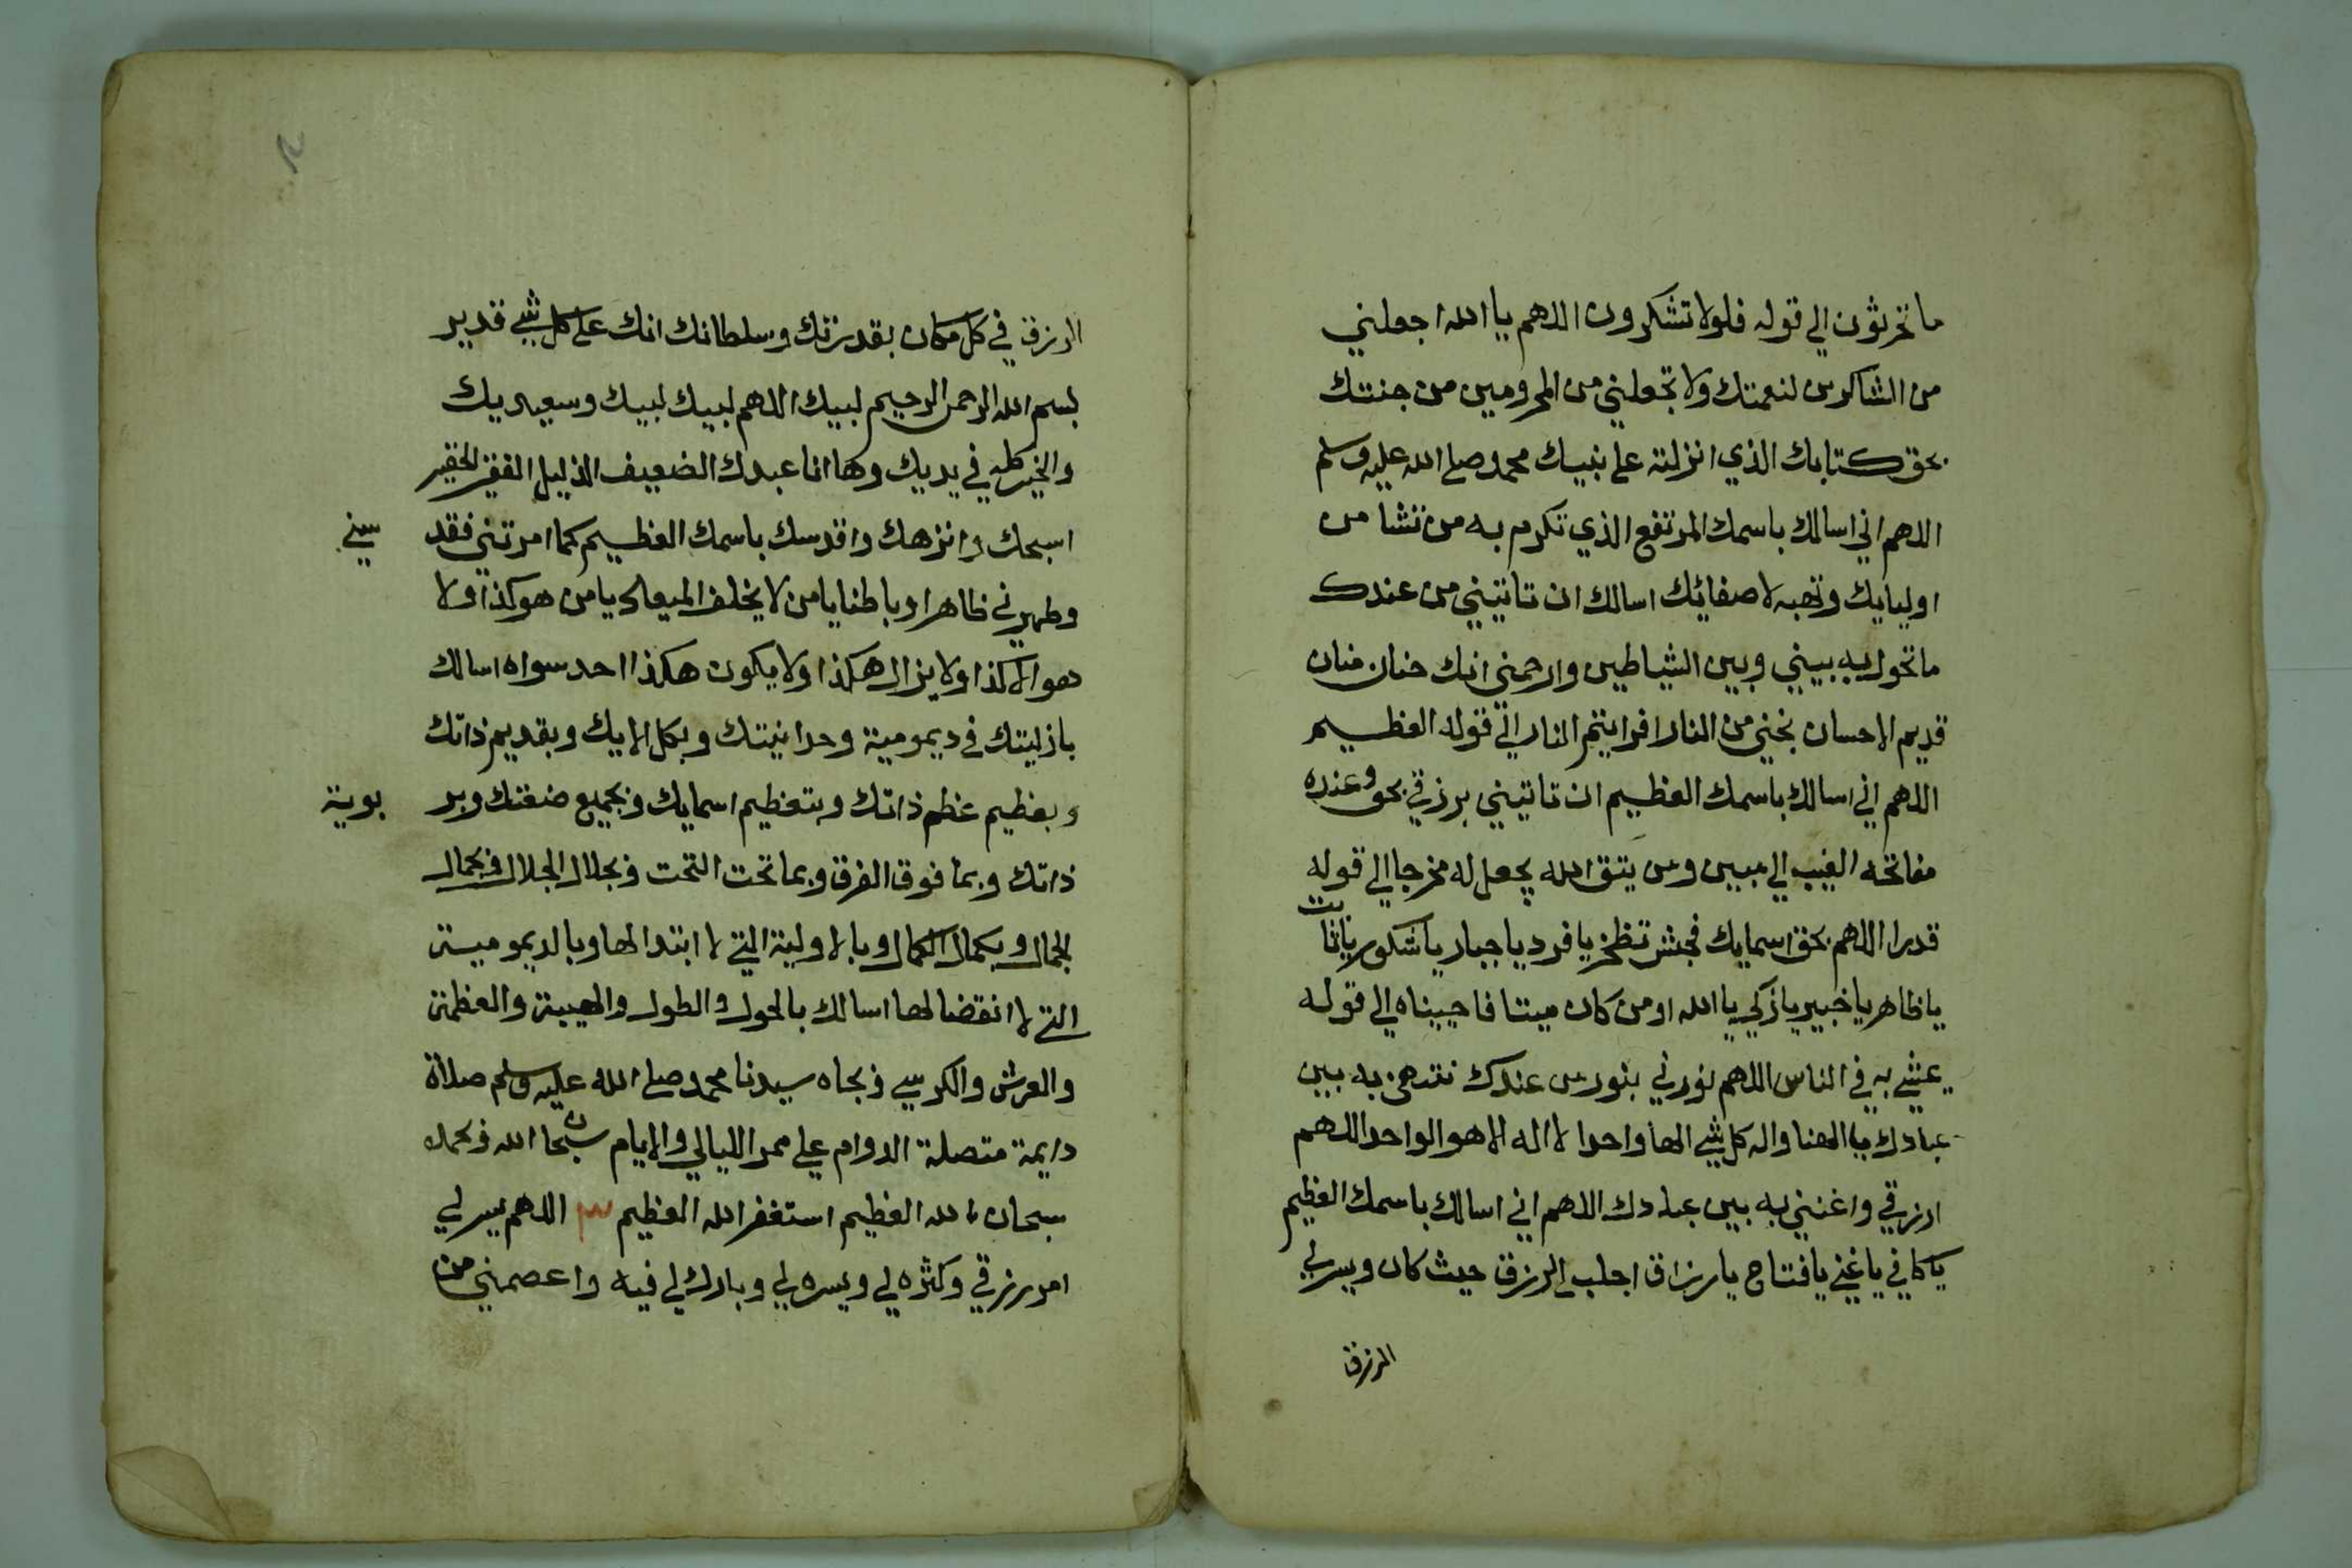 ما تحرثون الي قوله فلولا تشكرون اللهم يا الله اجعلني
من الشاكرين لنعمتك ولا تجعلني من المحرومين من جنتك
بحق كتابك الذي انزلته على نبيك محمد صلى الله عليه وسلم
اللهم اني اسالك باسمك المرتفع الذي تكرم به من تشا من
اوليايك وتهبه لاصفائك اسالك ان تاتيني من عندك
ما تحول به بيني وبين الشياطين وارحمني انك حنان منان
قديم الاحسان نجني من النار افرايتم النار الى قوله العظيم
اللهم اني اسالك باسمك العظيم ان تاتيني برزقي بحق وعنده
مفاتحه الغيب الي مبين ومن يتق الله يجعل له مخرجا الي قوله
قدرا اللهم بحق اسمايك فجش تظخز يا فرد يا جبار يا شكور يا ثابت
يا ظاهر يا خبير يا زكي يا الله اومن كان ميتا فاحييناه الي قوله
يمشي به في الناس اللهم نورني بنور من عندك به بين
عبادك يا الهنا واله كل شي الها واحدا لا اله الا هو الواحد اللهم
ارزقي واغنني به بين عبادك اللهم اني اسالك باسمك العظيم
يا كافي يا غني يا فتاح يا رزاق اجلب الرزق حيث كان ويسر لي
الرزق
الرزق في كل مكان بقدرتك وسلطانك انك على كل شي قدير
بسم الله الرحمن الرحيم لبيك اللهم لبيك لبيك وسعديك
والخير كله في يديك وها انا عبدك الضعيف الذليل الفقير الحقير
اسبحك وانزهك واقدسك باسمك العظيم كما امرتني فقد سني
وطهرني ظاهرا وباطنا يا من لا يخلف الميعاد يا من هو كذا ولا
هو الا كذا ولا يزال هكذا ولا يكون هكذا احد سواه اسالك
بازليتك في ديمومية وحدانيتك وبكل الايك وبقديم ذاتك
وبعظيم عظم ذاتك وبتعظيم اسمايك وبجميع صفتك وبر بوبية
ذاتك وبما فوق الفوق وبما تحت التحت وبجلال الجلال وبجمال
الجمال وبكمال الكمال وبالاولية التي لا ابتدا لها وبالديمومية
التي لا انقضا لها اسالك بالحول والطول والهيبة والعظمة
والعرش والكرسي وبجاه سيدنا محمد صلى الله عليه وسلم صلاة
دايمة متصلة الدوام علي ممر الليالي والايام سبحان الله وبحمده
سبحان الله العظيم استغفر الله العظيم اللهم يسر لي
امر رزقي وكثره لي ويسره لي وبارك لي فيه واعصمني من